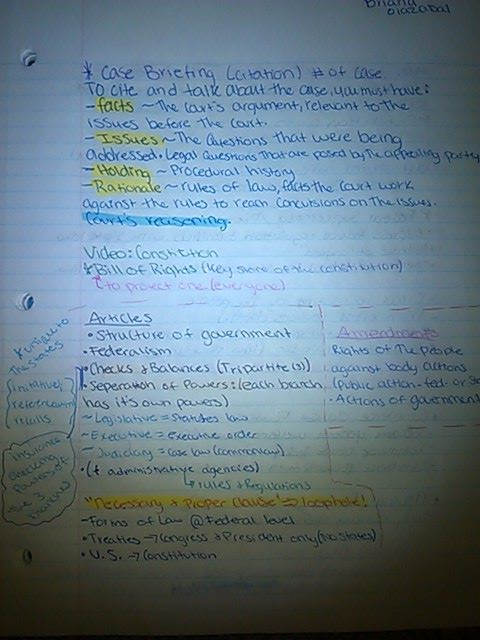 Briana
Olazabal
* Case Briefing (citation) # of case
TO cite and talk about the case, you must have:
- facts ~ The court's argument, relevant to the
issues before the court.
- Issues ~ The questions that were being
addressed. Legal questions that are posed by the appealing party
- Holding ~ Procedural history
- Rationale ~ rules of law, facts the court work
against the rules to reach conclusions on the issues.
Court's reasoning.
Video: Constitution
*Bill of Rights (Key store of the constitution)
to protect one (everyone)
Articles
• Structure of government
• Federalism
• Checks & Balances (Tripartite(s))
• Seperation of Powers: (each branch
has it's own powers)
~ Legislative = Statutes law
~ Executive = executive order
~ Judiciary = case law (common law)
• (4 administrative agencies)
rules + Regulations
"Necessary & Proper Clause" => loophole!
- Forms of Law @ Federal level
• Treaties -> Congress & President only (no states)
• U.S. -> Constitution
* unique to
the states
initiative,
referendum,
recalls
powers of
3
branches
Amendments
Rights of the people
against body actions
(public action - fed. or
• Actions of government